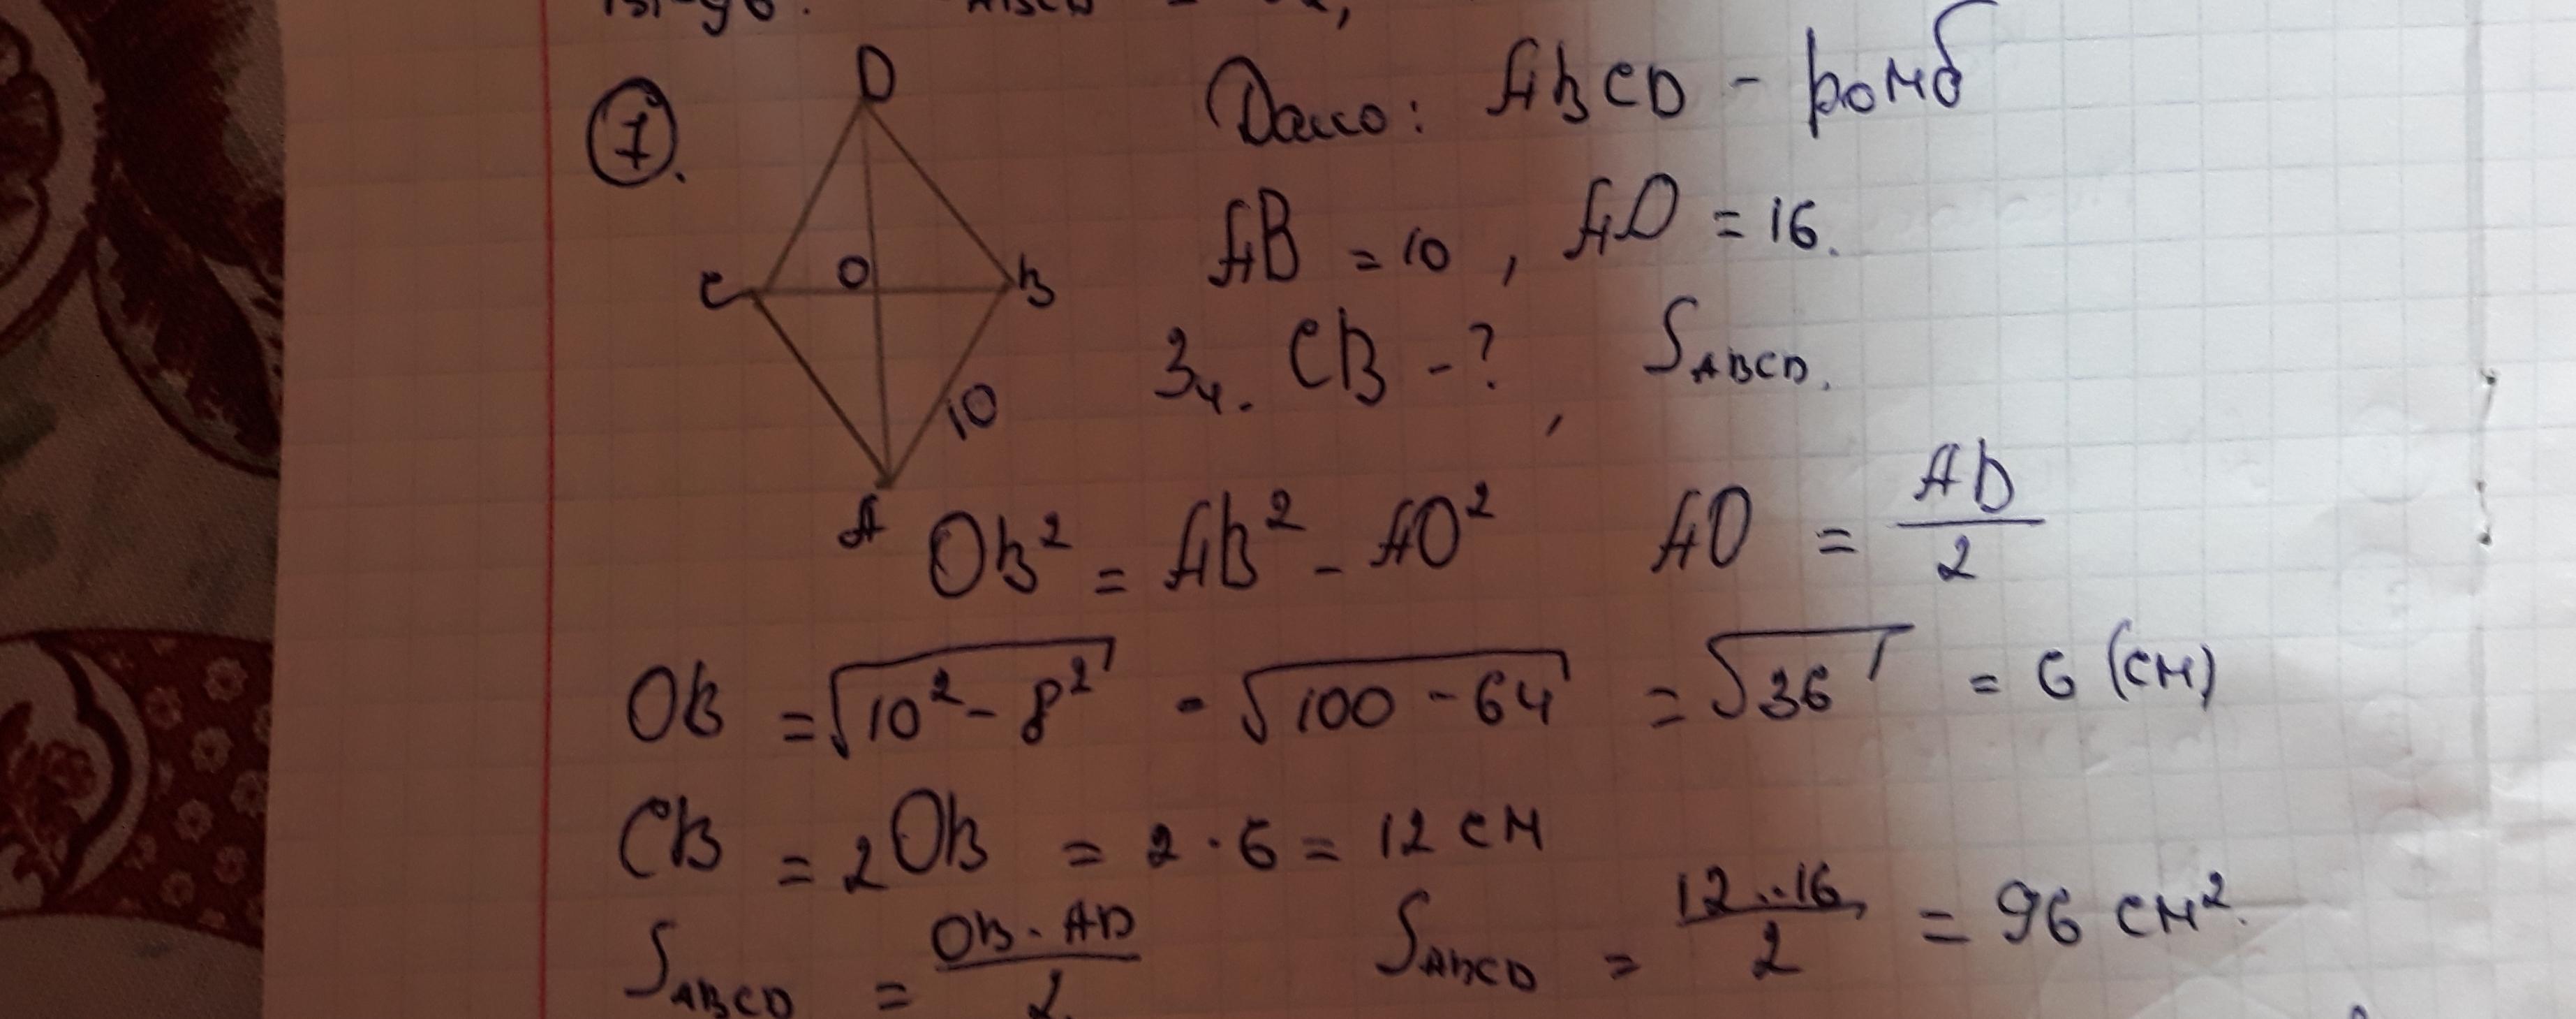 7.
D
C
O
B
10
A
Дано: ABCD - ромб
AB = 10, AD = 16.
Зн. CB - ?, S ABCD.
OB² = AB² - AO² AO = AD/2
OB = √10² - 8² = √100 - 64 = √36 = 6 (см)
CB = 2OB = 2 · 6 = 12 см
S ABCD = OB · AD/2 S ABCD = 12 · 16/2 = 96 см².